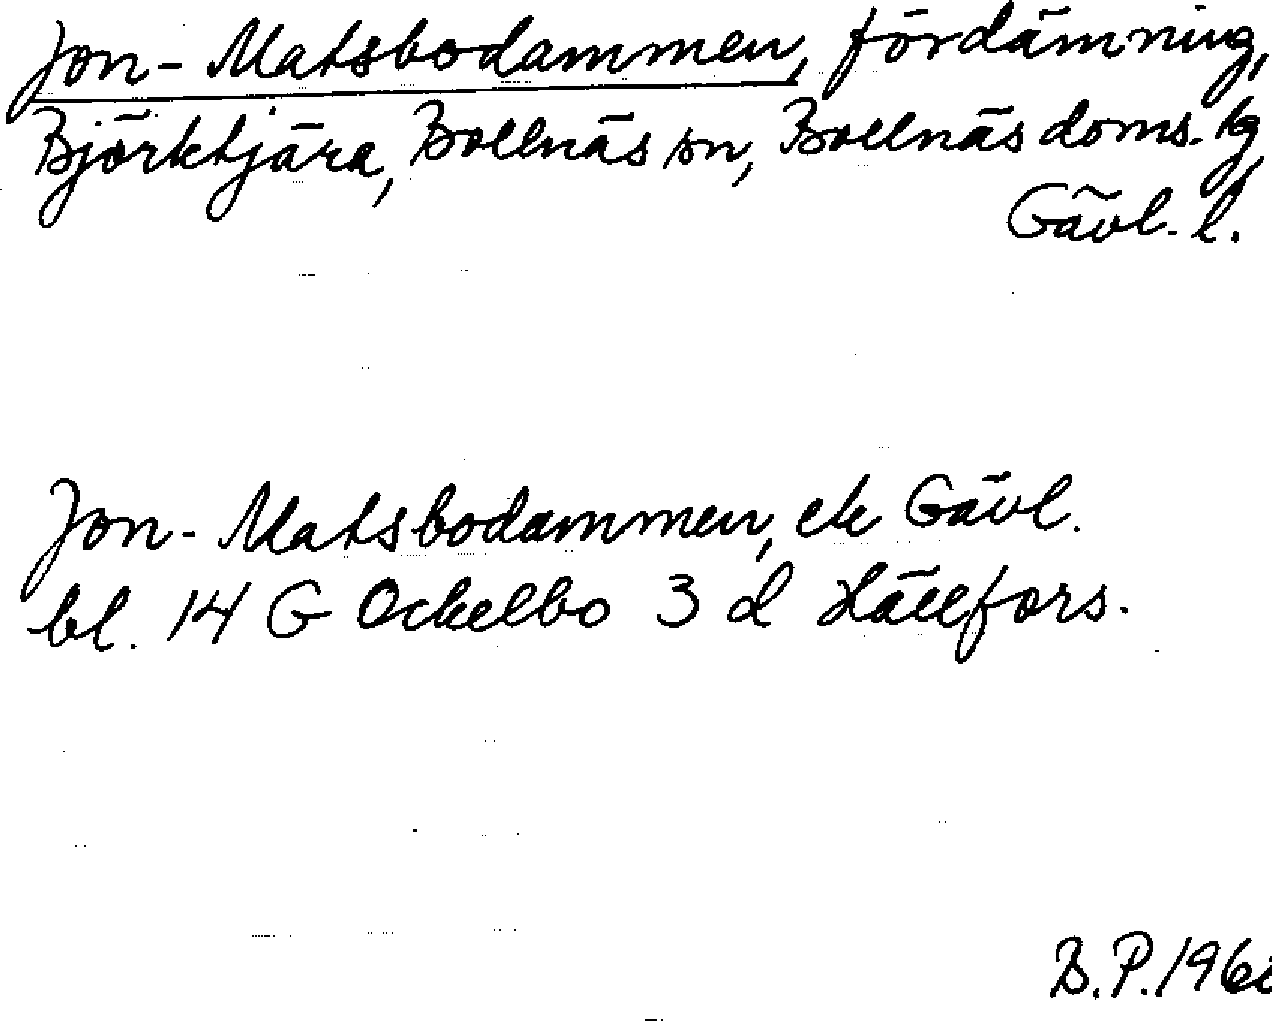 Jon-Matsbodammen, fördämning,
Björktjära, Bollnäs sn, Bollnäs doms. tg
Gävl. l.
Jon-Matsbodammen, ek Gävl.
bl. 14 G Ockelbo 3 d Lällfors.
B.P.